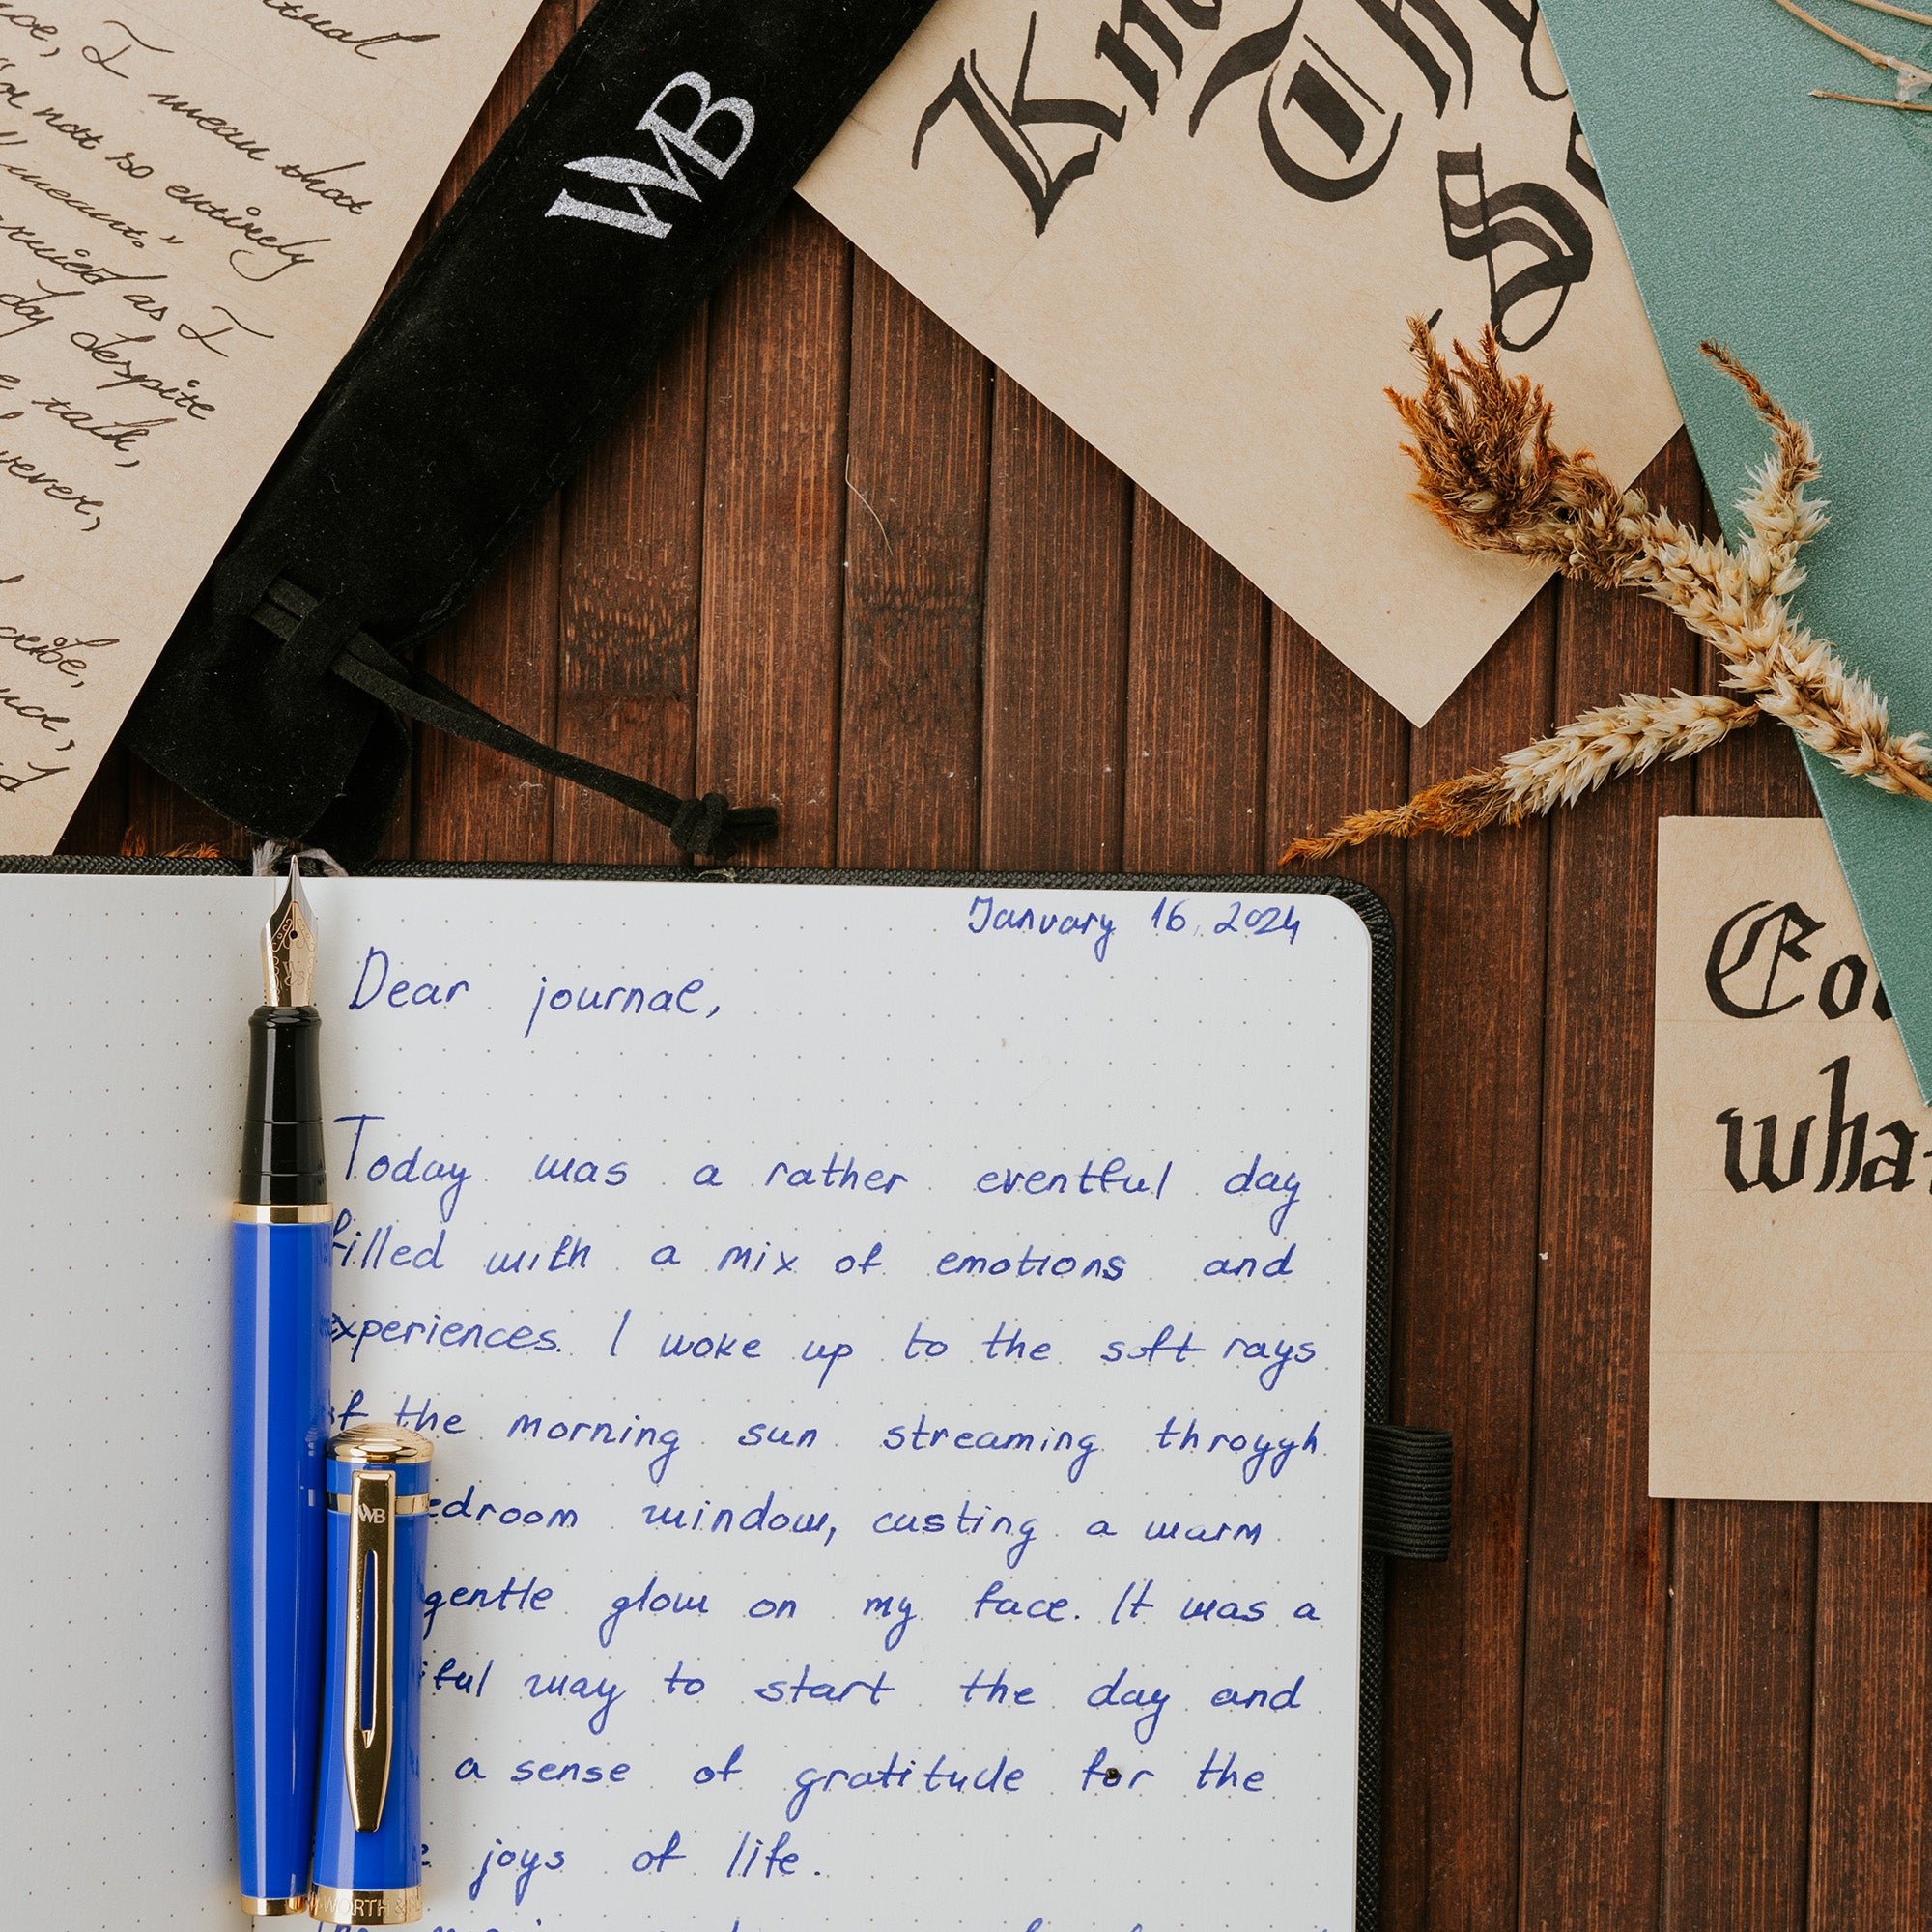 I mean that
not so entirely
meant."
as I
day despite
talk,
WB
January 16, 2024
Dear journal,
Today was a rather eventful day
filled with a mix of emotions and
experiences. I woke up to the soft rays
of the morning sun streaming throygh
edroom window, casting a warm
gentle glow on my face. It was a
iful way to start the day and
a sense of gratitude for the
joys of life.
what
WB
WORTH &